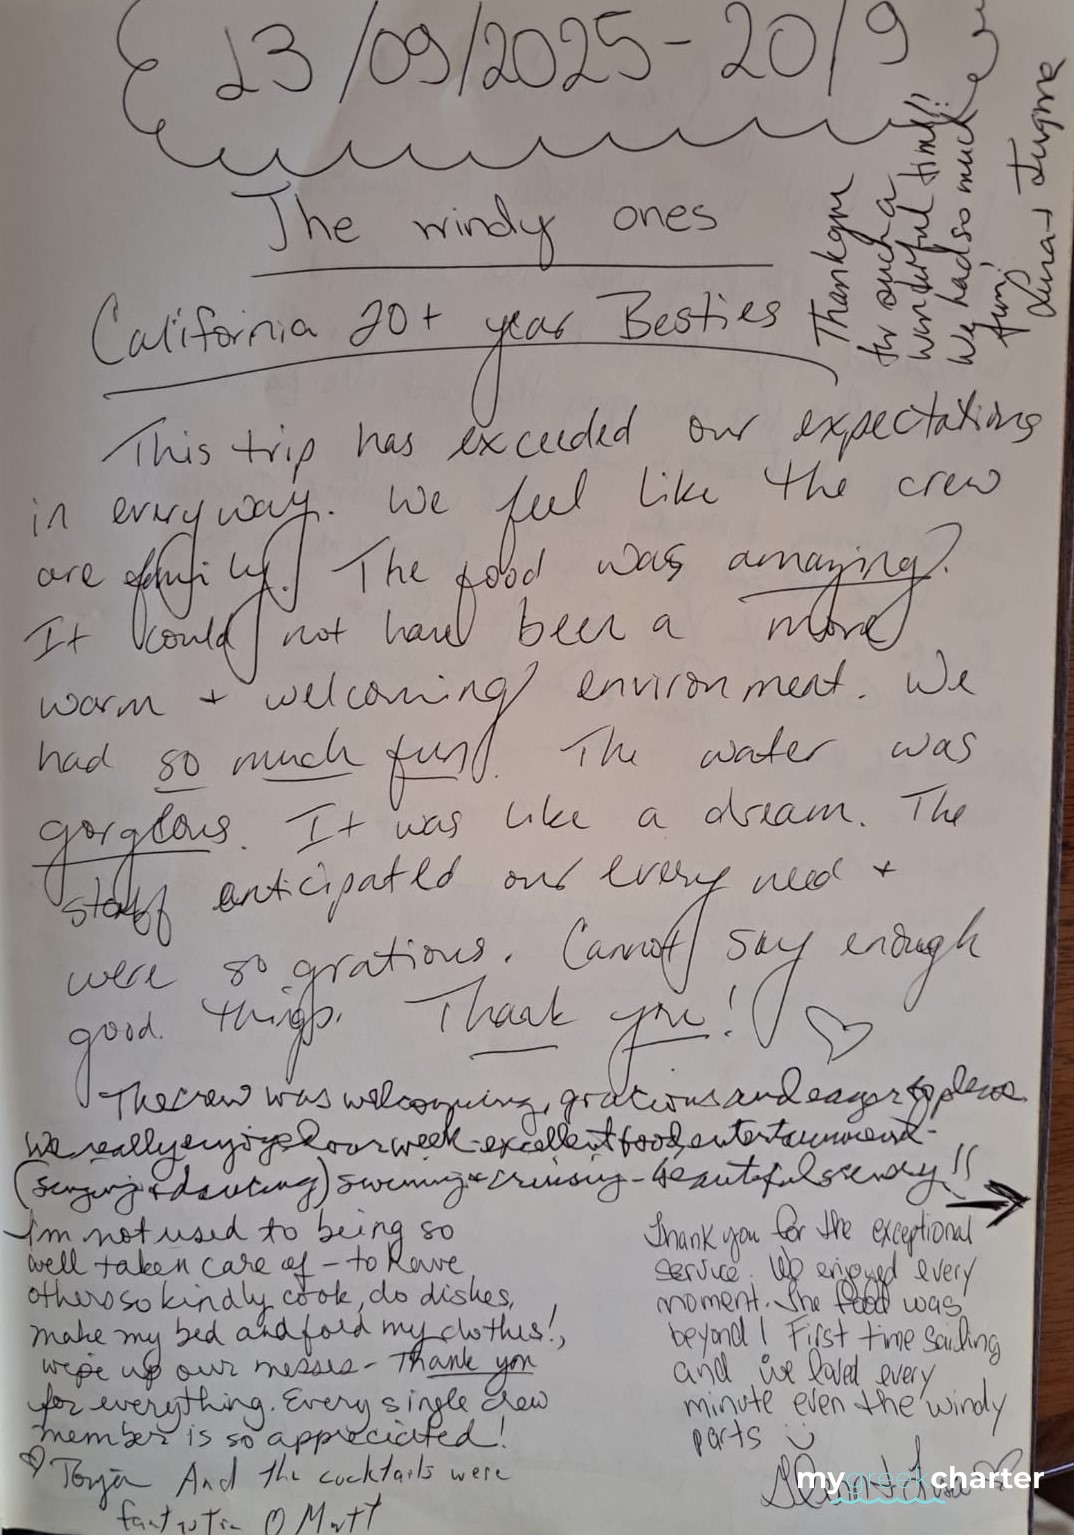 13/09/2025 - 20/9
The windy ones
California 20+ year Besties
Thank you
for such a
wonderful time!!
We had so much
fun!
Lena +
This trip has exceeded our expectations
in every way. We feel like the crew
are family. The food was amazing.
It could not have been a more
warm + welcoming environment. We
had so much fun. The water was
gorgeous. It was like a dream. The
staff anticipated our every need +
were so gratious. Cannot say enough
good things. Thank you!
The crew was welcoming, gracious and eager to please
We really enjoyed our week - excellent food, entertainment -
(singing + dancing) swiming + cruising - beautiful scenery!!
I'm not used to being so
well taken care of - to have
others so kindly cook, do dishes,
make my bed and fold my clothes!,
wipe up our messes - Thank you
for everything. Every single crew
member is so appreciated!
Tonja And the cocktails were
Matt
Thank you for the exceptional
service. We enjoyed every
moment. The food was
beyond! First time sailing
and we loved every
minute even the windy
parts
mygreekcharter